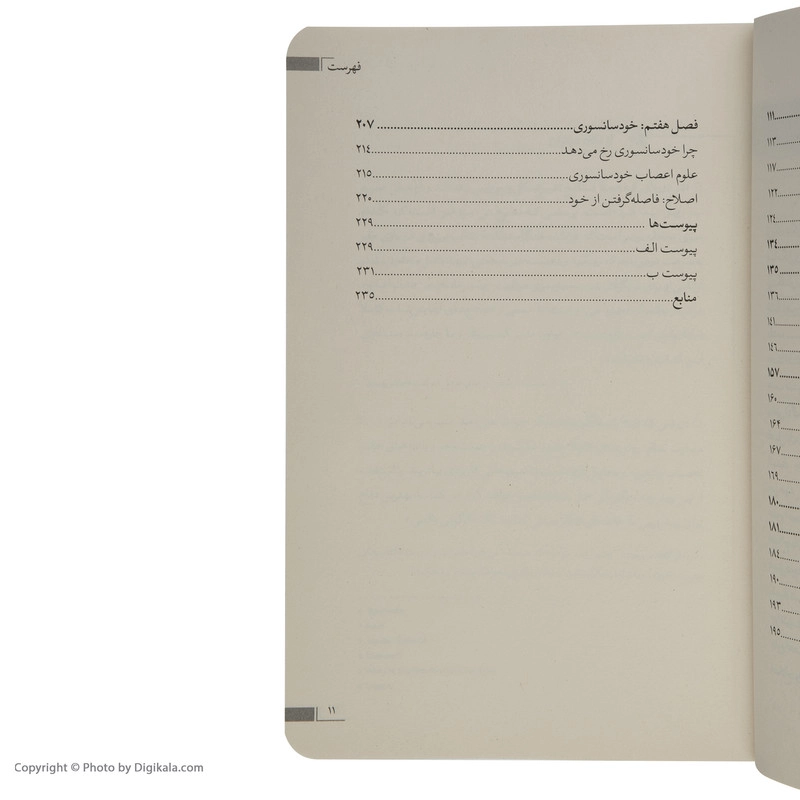 فهرست
فصل هفتم: خودسانسوری............................................................ ۲۰۷
چرا خودسانسوری رخ می‌دهد............................................................۲۱٤
علوم اعصاب خودسانسوری............................................................۲۱۵
اصلاح: فاصله‌گرفتن از خود............................................................۲۲۰
پیوست‌ها ............................................................۲۲۹
پیوست الف............................................................۲۲۹
پیوست ب............................................................۲۳۱
منابع............................................................۲۳۵
۱۱
۱۱۱
۱۱۳
۱۱۷
۱۲۲
۱۲٤
۱۳٤
۱۳۵
۱۳۶
۱٤۱
۱٤۶
۱۵۷
۱۶۰
۱۶۴
۱۶۷
۱۶۹
۱۸۰
۱۸۱
۱۸٤
۱۹۰
۱۹۳
۱۹۵
Copyright © Photo by Digikala.com